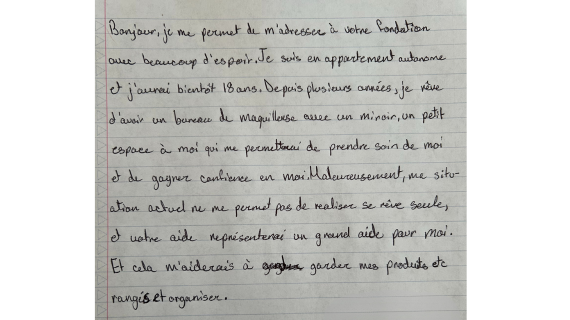 Bonjour, je me permet de m'adresser à votre fondation
avec beaucoup d'espoir. Je suis en appartement autonome
et j'aurai bientôt 18 ans. Depuis plusieurs années, je rêve
d'avoir un bureau de maquilleuse avec un miroir, un petit
espace à moi qui me permetterai de prendre soin de moi
et de gagner confience en moi. Maleureusement, me situ-
ation actuel ne me permet pas de realiser se rêve seule,
et votre aide représenterai un grand aide pour moi.
Et cela m'aiderais à garder mes produits etc
rangés et organiser.